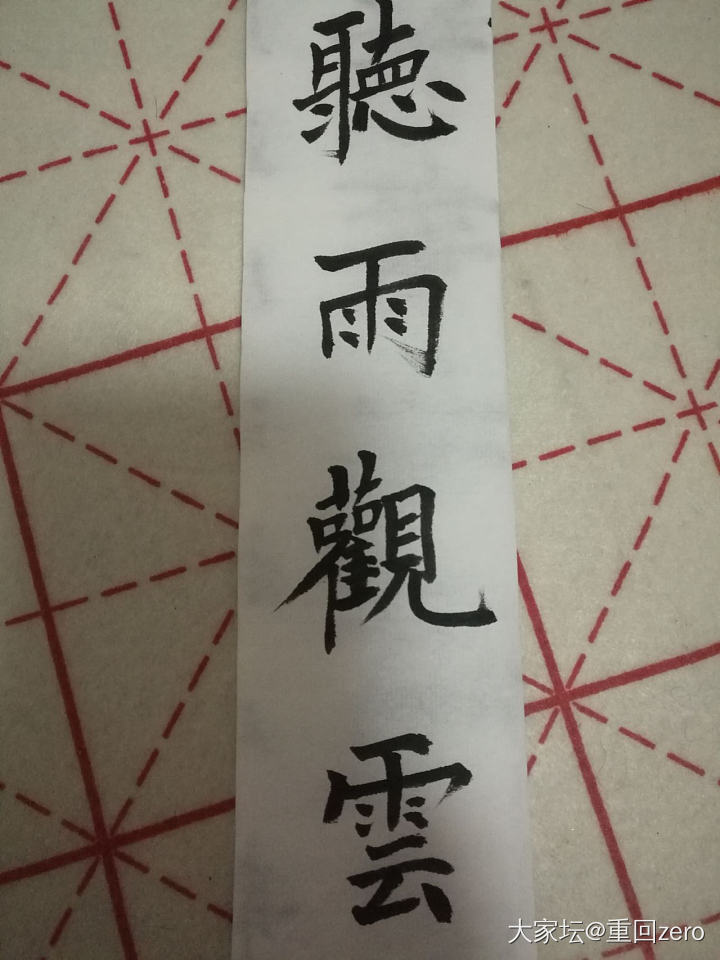 聽雨觀雲
大家坛@重回zero